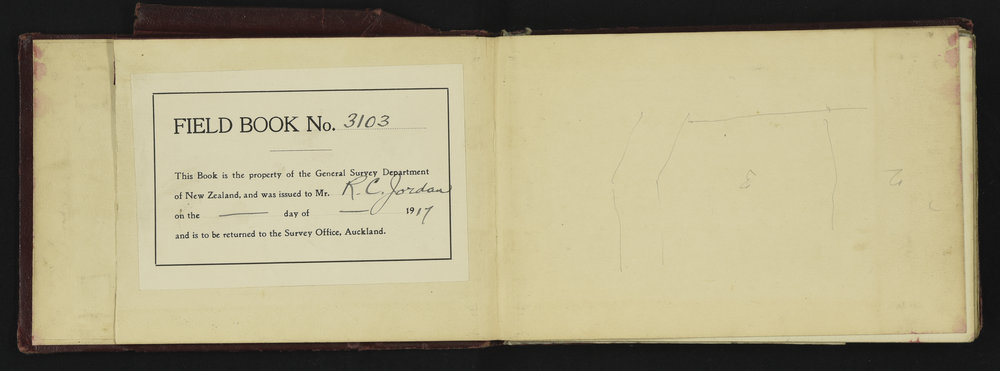 FIELD BOOK No. 3103
This Book is the property of the General Survey Department
of New Zealand, and was issued to Mr. R. C. Jordan
on the — day of — 1917
and is to be returned to the Survey Office, Auckland.
3
2